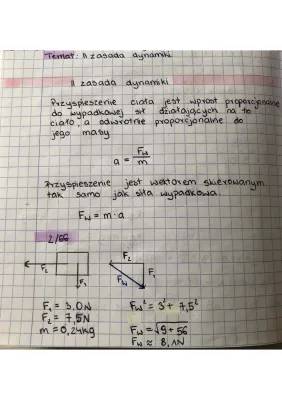 Temat: II zasada dynamiki.
II zasada dynamiki
Przyspieszenie ciała jest wprost proporcjonalne
do wypadkowej sił działających na to
ciało, a odwrotnie proporcjonalne do
jego masy
a = Fw/m
Przyspieszenie jest wektorem skierowanym
tak samo jak siła wypadkowa.
Fw = m · a
2/66
F₂ F₁
F₂ Fw F₁
F₁ = 3,0N Fw² = 3² + 7,5²
F₂ = 7,5N
m = 0,24kg Fw = √9 + 56
Fw ≈ 8,1N